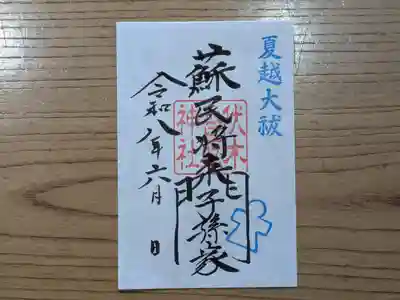 夏越大祓
蘇民将来子孫家
門
伏木神社
令和八年六月 日